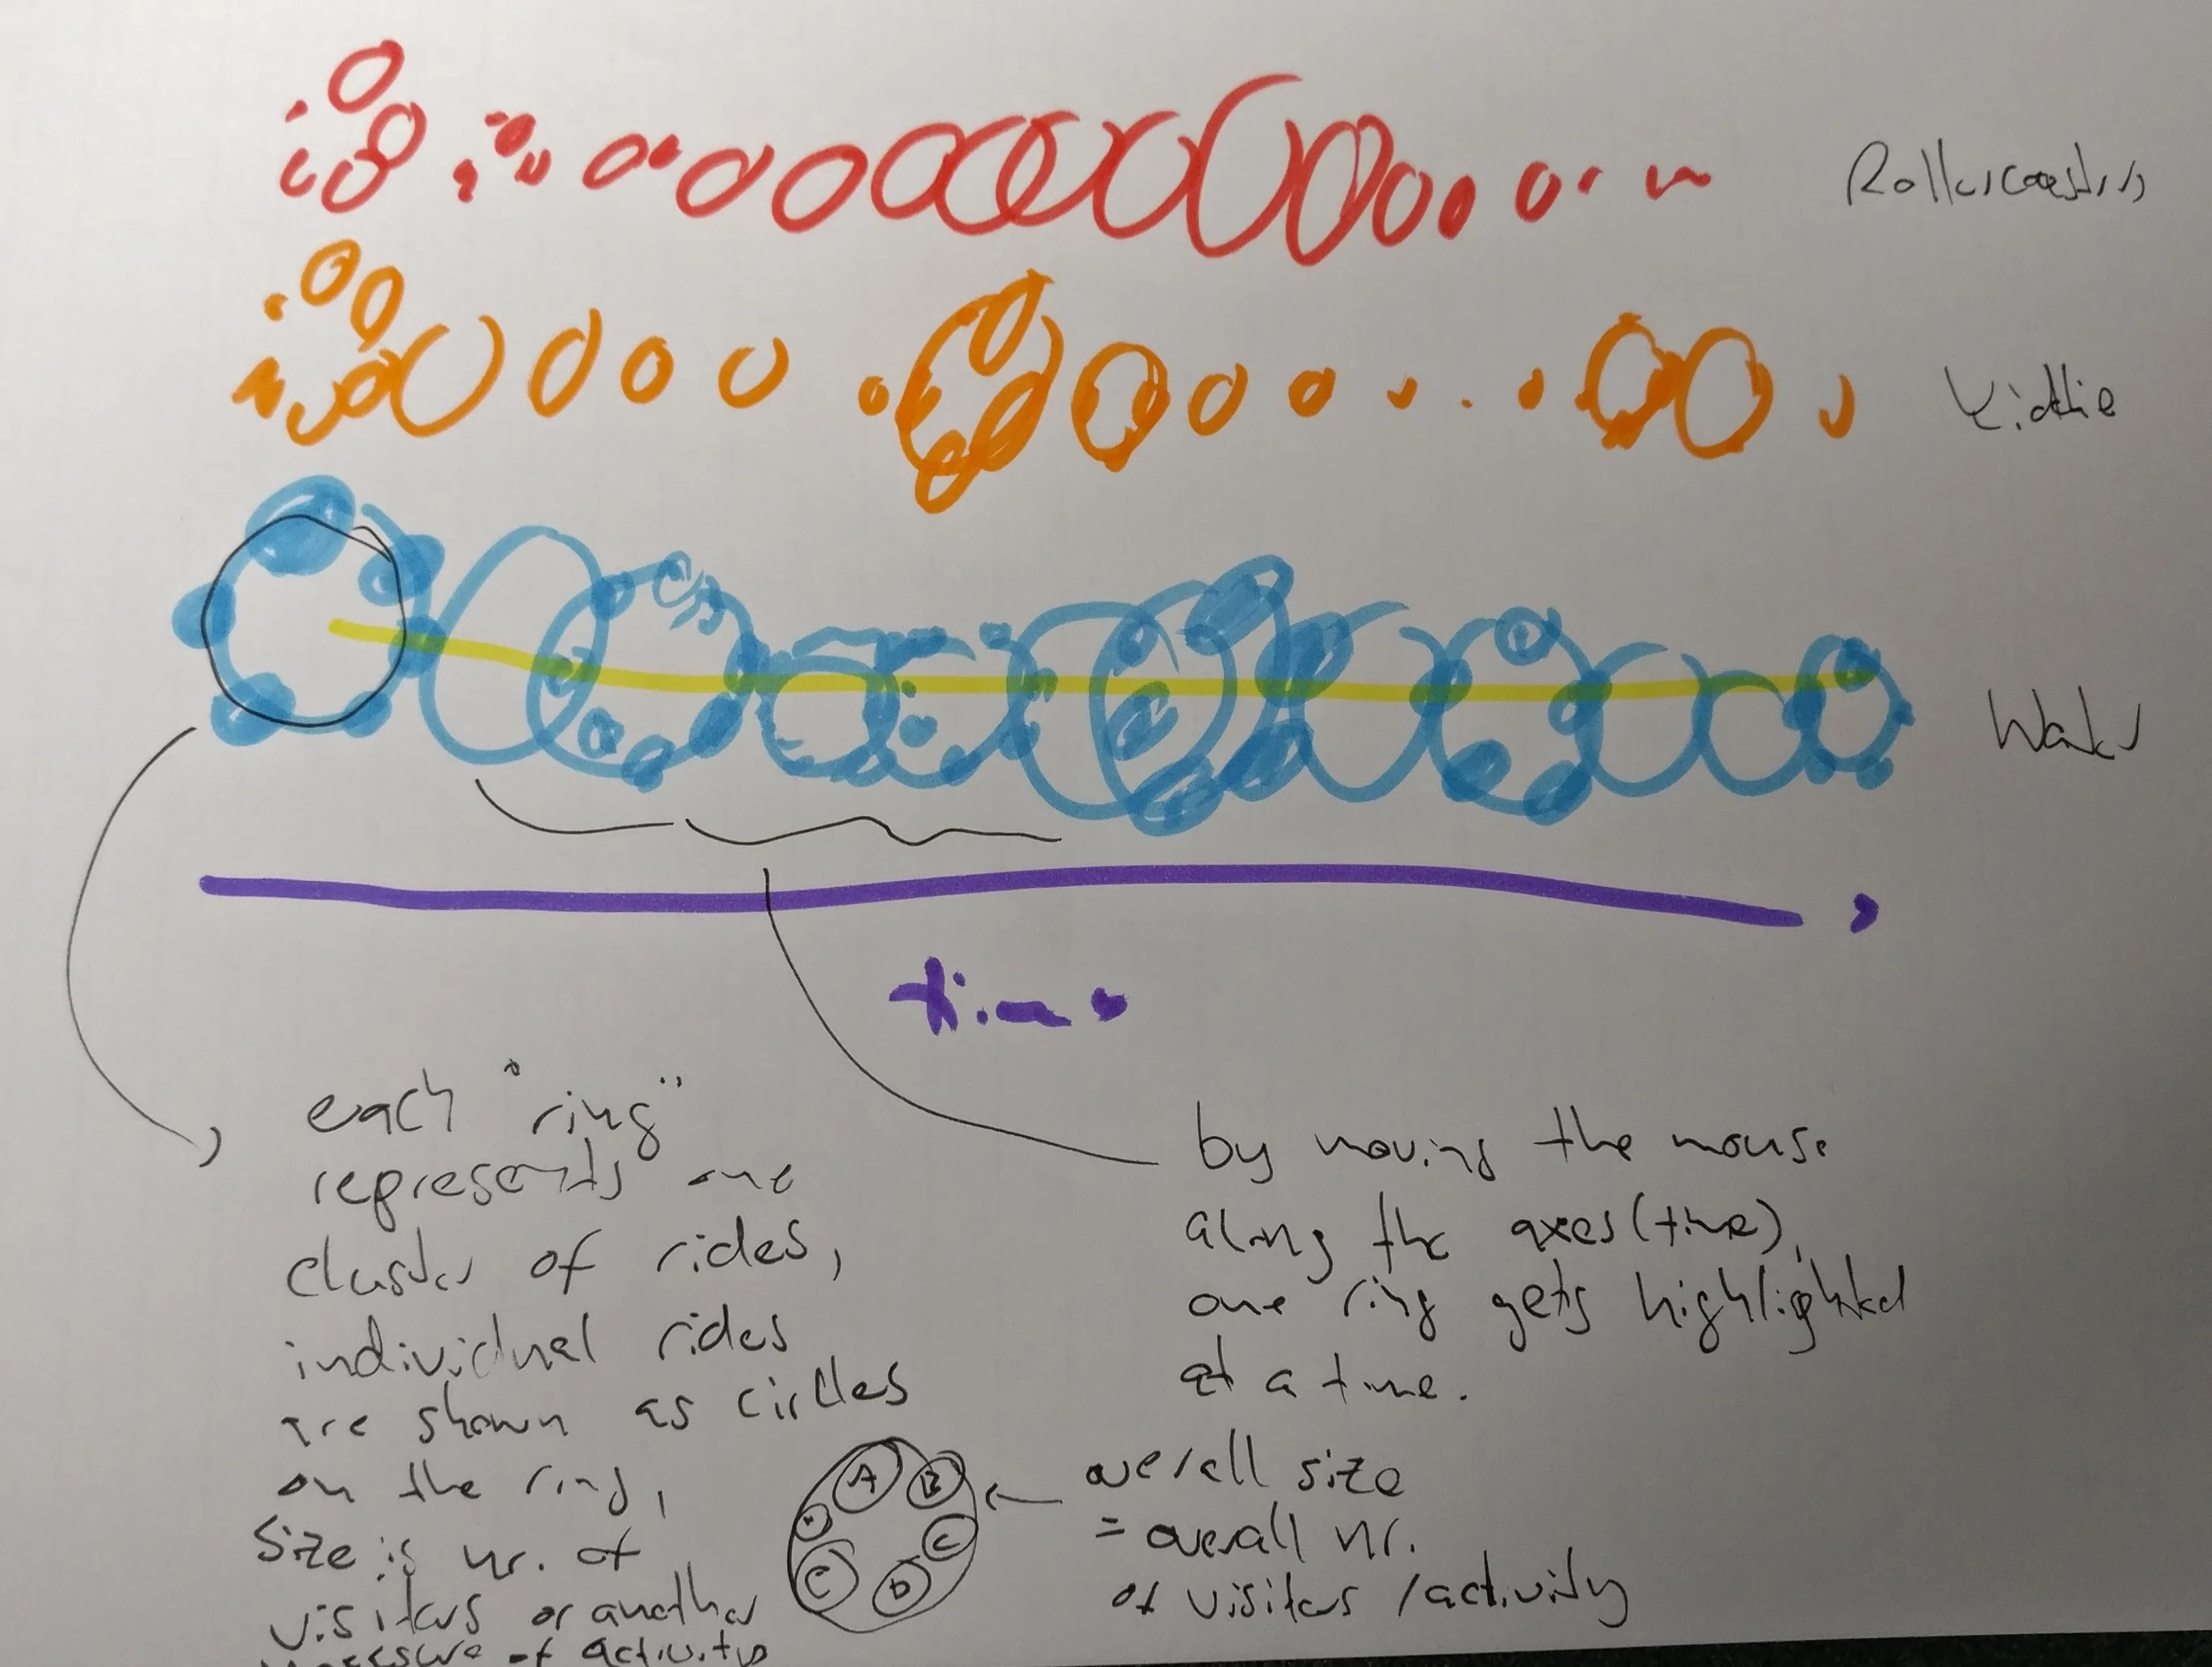 Rollercoasters
Kiddie
Water
time
each "ring"
represents one
cluster of rides,
individual rides
are shown as circles
on the ring,
size is nr. of
visitors or another
measure of activity
by moving the mouse
along the axes (time),
one ring gets highlighted
at a time.
A B
C
D
C
overall size
= overall nr.
of visitors / activity